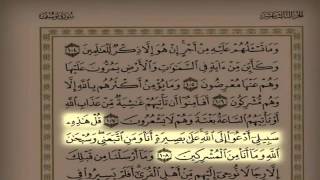 الجزء الثالث عشر سورة يوسف
وَمَا تَسْـَٔلُهُمْ عَلَيْهِ مِنْ أَجْرٍ إِنْ هُوَ إِلَّا ذِكْرٌ لِّلْعَـٰلَمِينَ ١٠٤
وَكَأَيِّن مِّنْ ءَايَةٍ فِى ٱلسَّمَـٰوَٰتِ وَٱلْأَرْضِ يَمُرُّونَ عَلَيْهَا
وَهُمْ عَنْهَا مُعْرِضُونَ ١٠٥ وَمَا يُؤْمِنُ أَكْثَرُهُم بِٱللَّهِ إِلَّا
وَهُم مُّشْرِكُونَ ١٠٦ أَفَأَمِنُوٓا۟ أَن تَأْتِيَهُمْ غَـٰشِيَةٌ مِّنْ عَذَابِ ٱللَّهِ
أَوْ تَأْتِيَهُمُ ٱلسَّاعَةُ بَغْتَةً وَهُمْ لَا يَشْعُرُونَ ١٠٧ قُلْ هَـٰذِهِۦ
سَبِيلِىٓ أَدْعُوٓا۟ إِلَى ٱللَّهِ عَلَىٰ بَصِيرَةٍ أَنَا۠ وَمَنِ ٱتَّبَعَنِى وَسُبْحَـٰنَ
ٱللَّهِ وَمَآ أَنَا۠ مِنَ ٱلْمُشْرِكِينَ ١٠٨ وَمَآ أَرْسَلْنَا مِن قَبْلِكَ
إِلَّا رِجَالًا نُّوحِىٓ إِلَيْهِم مِّنْ أَهْلِ ٱلْقُرَىٰٓ أَفَلَمْ يَسِيرُوا۟